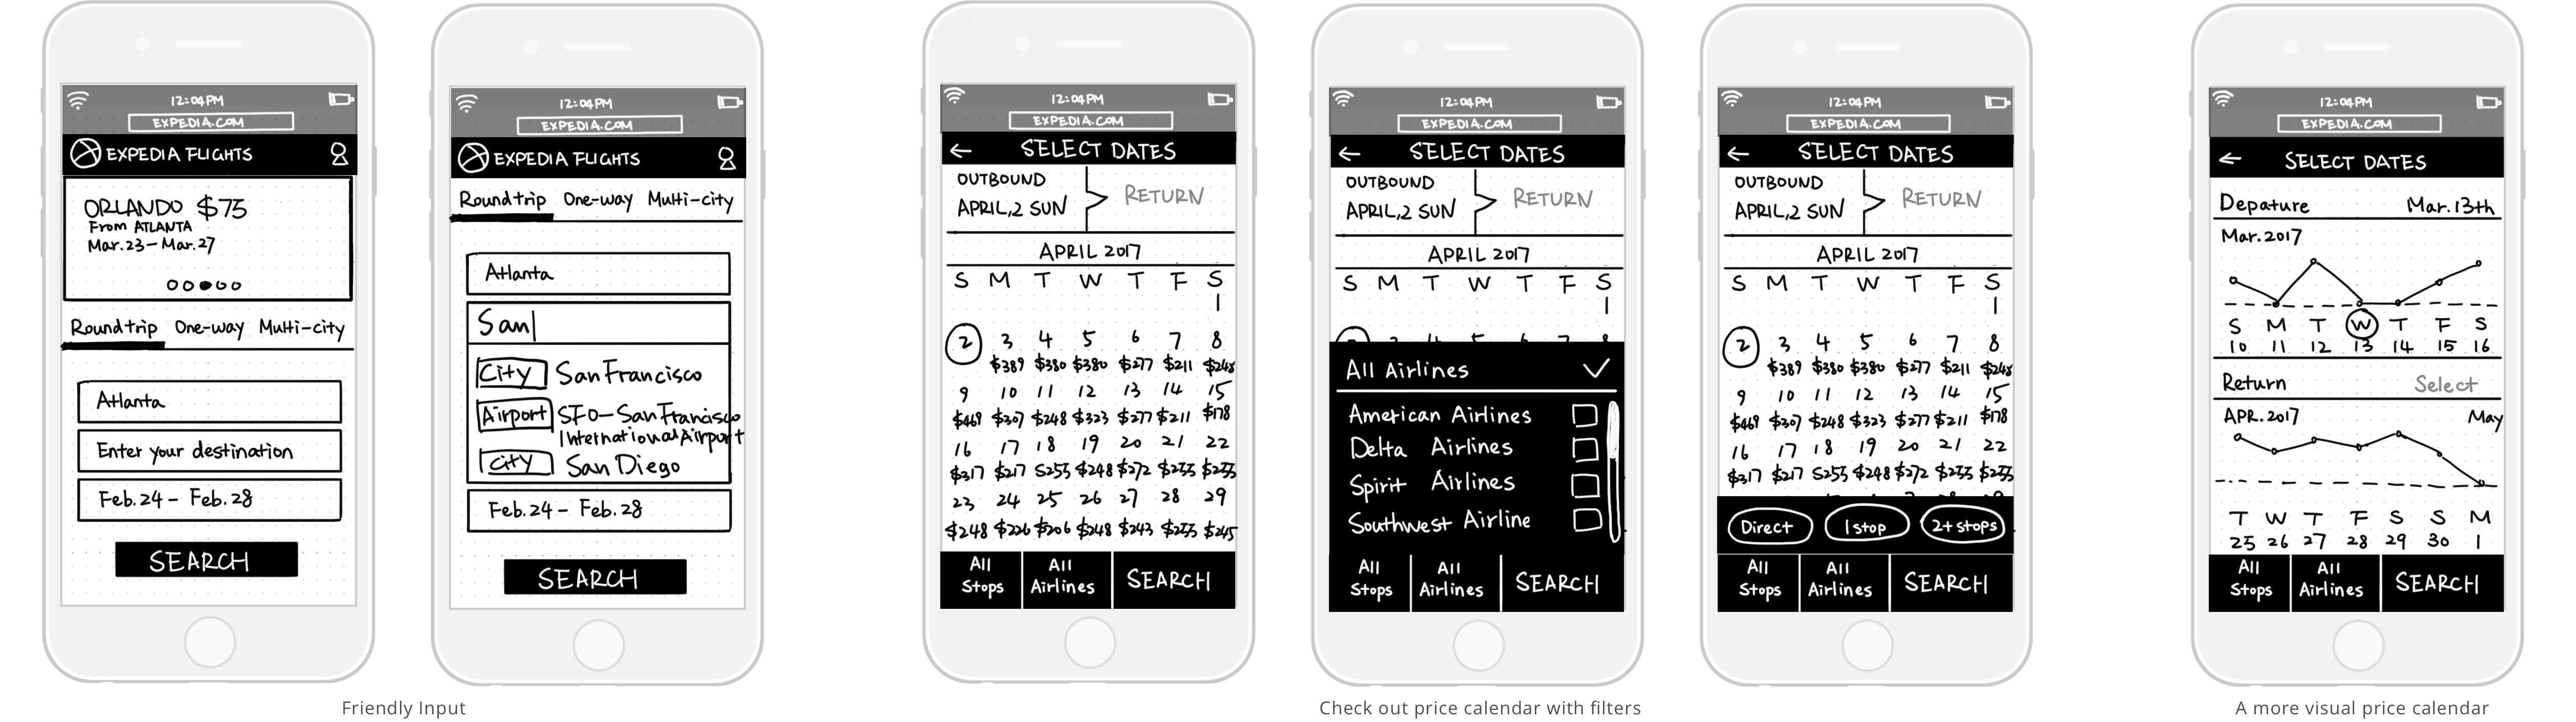 12:04PM
EXPEDIA.COM
EXPEDIA FLIGHTS
ORLANDO $75
From ATLANTA
Mar.23-Mar.27
Roundtrip One-way Multi-city
Atlanta
Enter your destination
Feb.24- Feb.28
SEARCH
12:04PM
EXPEDIA.COM
EXPEDIA FLIGHTS
Roundtrip One-way Multi-city
Atlanta
San
City San Francisco
Airport SFO-San Francisco
International Airport
City San Diego
Feb.24- Feb.28
SEARCH
Friendly Input
12:04PM
EXPEDIA.COM
← SELECT DATES
OUTBOUND
APRIL,2 SUN
RETURN
APRIL 2017
S M T W T F S
1
2 3 4 5 6 7 8
$389 $380 $380 $277 $211 $248
9 10 11 12 13 14 15
$469 $307 $248 $323 $277 $211 $178
16 17 18 19 20 21 22
$317 $217 $255 $248 $272 $255 $255
23 24 25 26 27 28 29
$248 $226 $206 $248 $243 $255 $245
All Stops
All Airlines
SEARCH
12:04PM
EXPEDIA.COM
← SELECT DATES
OUTBOUND
APRIL,2 SUN
RETURN
APRIL 2017
S M T W T F S
1
All Airlines
American Airlines
Delta Airlines
Spirit Airlines
Southwest Airline
All Stops
All Airlines
SEARCH
12:04PM
EXPEDIA.COM
← SELECT DATES
OUTBOUND
APRIL,2 SUN
RETURN
APRIL 2017
S M T W T F S
1
2 3 4 5 6 7 8
$389 $380 $380 $277 $211 $248
9 10 11 12 13 14 15
$469 $307 $248 $323 $277 $211 $178
16 17 18 19 20 21 22
$317 $217 $255 $248 $272 $255 $255
Direct 1 stop 2+ stops
All Stops
All Airlines
SEARCH
Check out price calendar with filters
12:04PM
EXPEDIA.COM
← SELECT DATES
Depature Mar.13th
Mar.2017
S M T W T F S
10 11 12 13 14 15 16
Return Select
APR.2017 May
T W T F S S M
25 26 27 28 29 30 1
All Stops
All Airlines
SEARCH
A more visual price calendar